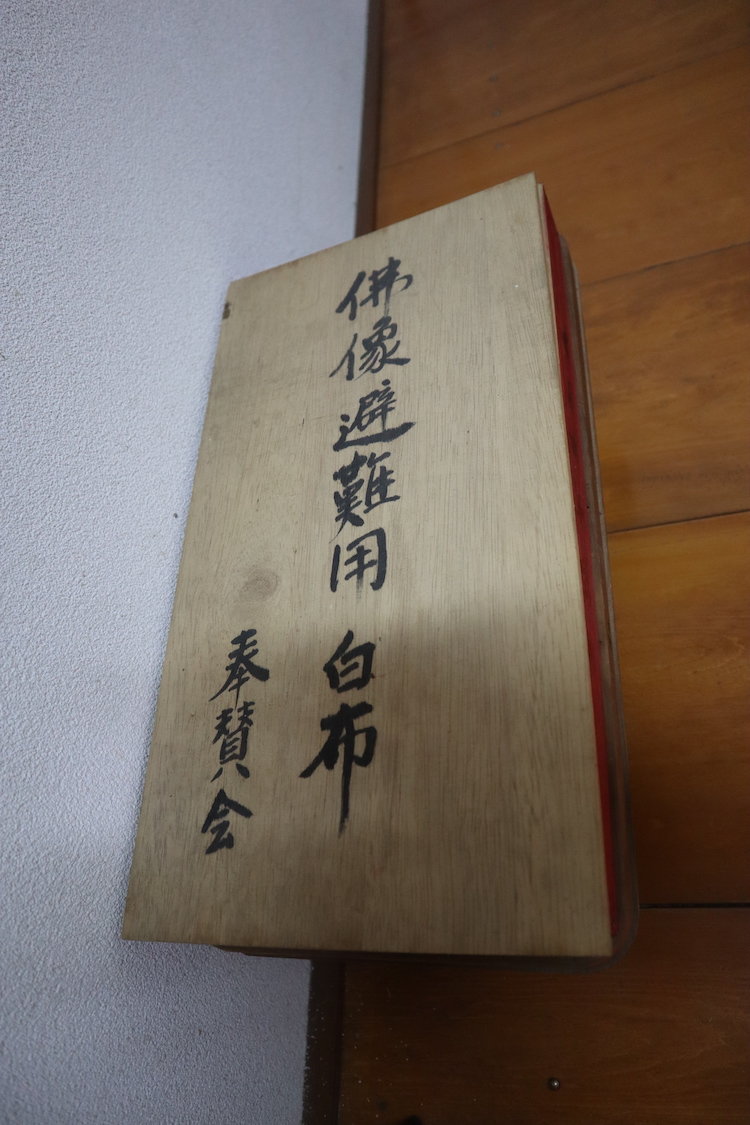 佛像避難用 白布
奉賛会